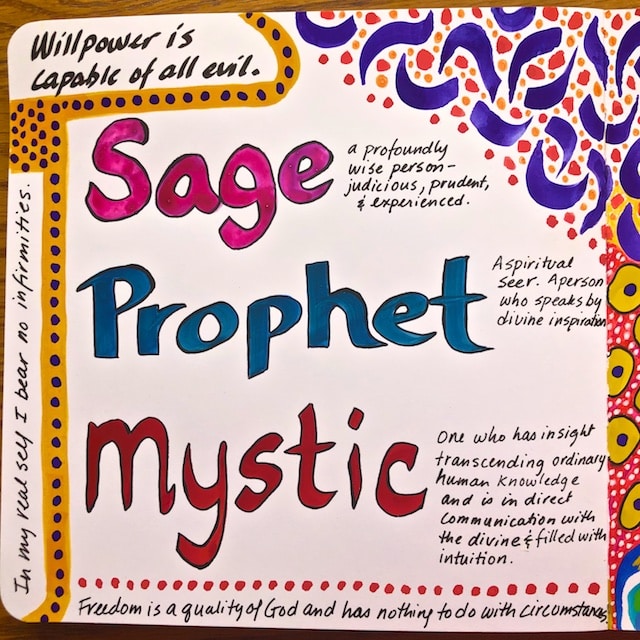 Willpower is
capable of all evil.
In my real self I bear no infirmities.
Sage
a profoundly
wise person-
judicious, prudent,
& experienced.
Prophet
A spiritual
seer. A person
who speaks by
divine inspiration
Mystic
One who has insight
transcending ordinary
human knowledge
and is in direct
communication with
the divine & filled with
intuition.
Freedom is a quality of God and has nothing to do with circumstances